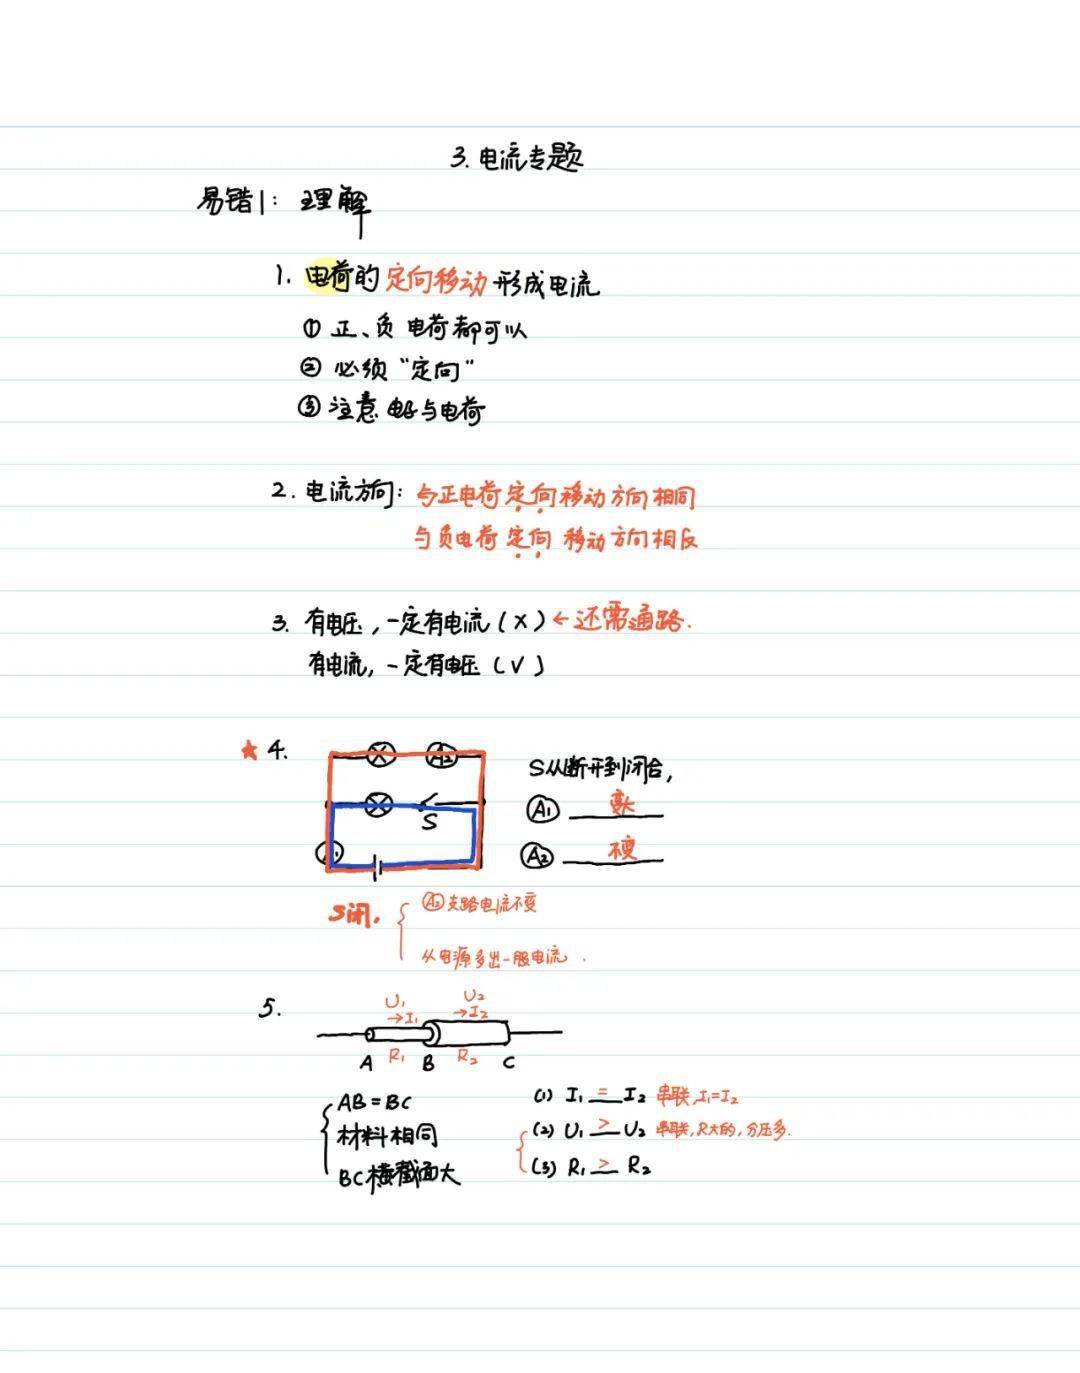 3. 电流专题
易错1: 理解
1. 电荷的定向移动形成电流
① 正、负电荷都可以
② 必须“定向”
③ 注意 电子与电荷
2. 电流方向: 与正电荷定向移动方向相同
与负电荷定向移动方向相反
3. 有电压, 一定有电流 (X) ← 还需通路.
有电流, 一定有电压 (√)
★ 4.
A₂
S
S从断开到闭合,
A₁ 变大
A₂ 不变
S闭,
A₂ 支路电流不变
从电源多出一股电流.
5.
U₁ U₂
→I₁ →I₂
A R₁ B R₂ C
AB = BC
材料相同
BC横截面大
(1) I₁ = I₂ 串联, I₁=I₂
(2) U₁ > U₂ 串联, R大的, 分压多.
(3) R₁ > R₂